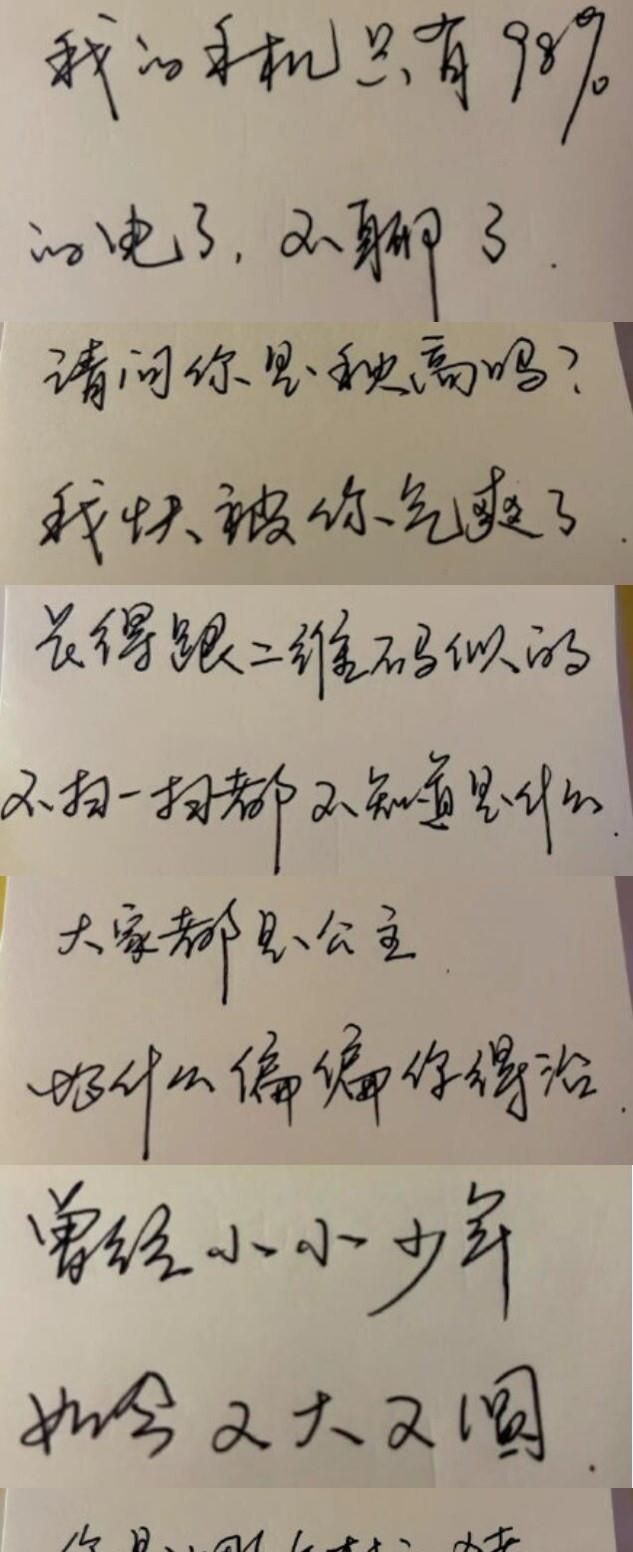 我的手机只有98%
的电了,不聊了.
请问你是秧高吗?
我快被你气爽了.
长得跟二维码似的
不扫一扫都不知道是什么.
大家都是公主
为什么偏偏你得治.
曾经小小少年
如今又大又圆.